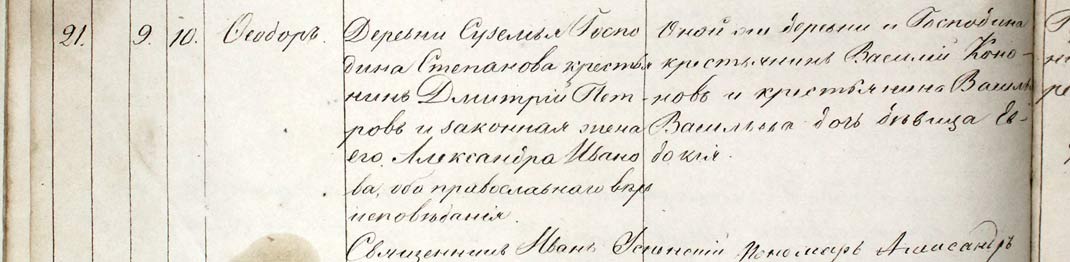 21. 9. 10. Ѳеодоръ.
Деревни Суземья Госпо-
дина Степанова крестья
нинъ Дмитрій Пет-
ровъ и законная жена
его Александра Ивано
ва, оба православнаго вѣро
исповѣданія.
Оной же деревни и Господина
крестьянинъ Василій Коно-
новъ и крестьянина Василья
Васильева дочь дѣвица Ев-
докія.
Священникъ Иванъ Пономарь Александръ